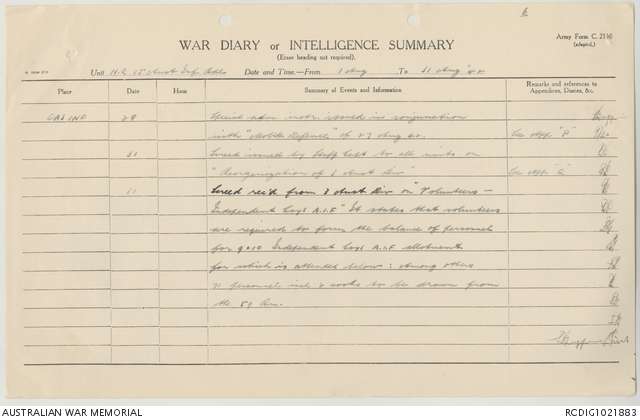 Army Form C. 2118
(adapted.)
WAR DIARY or INTELLIGENCE SUMMARY
(Erase heading not required).
Unit H.Q. 15 Aust Inf Bde Date and Time—From 1 Aug To 31 Aug
Place Date Hour Summary of Events and Information Remarks and references to Appendices, Diaries, &c.
28 Special adm note issued in conjunction
with "Mobile Defence" of 27 Aug See App "P"
31 issued by Staff Capt to all units on
"Reorganization of 3 Aust Div" See App "Q"
rec'd from 3 Aust Div on "Volunteers –
Independent Coys A.I.F" It states that volunteers
are required to form the balance of personnel
for Independent Coys A.I.F allotment
for which is attended below: Among others
71 personnel incl 2 cooks to be drawn from
the 59 Bn.
AUSTRALIAN WAR MEMORIAL
RCDIG1021883